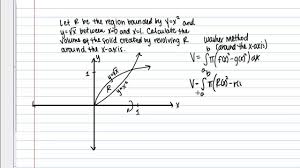 Let R be the region bounded by y=x² and
y=√x between x=0 and x=1. Calculate the
volume of the solid created by revolving R
around the x-axis.
washer method
(around the x-axis)
V = ∫ₐᵇ π(f(x)²-g(x)²)dx
V = ∫ π(R(x)² - r(x
y
1
y=√x
R
y=x²
1
x